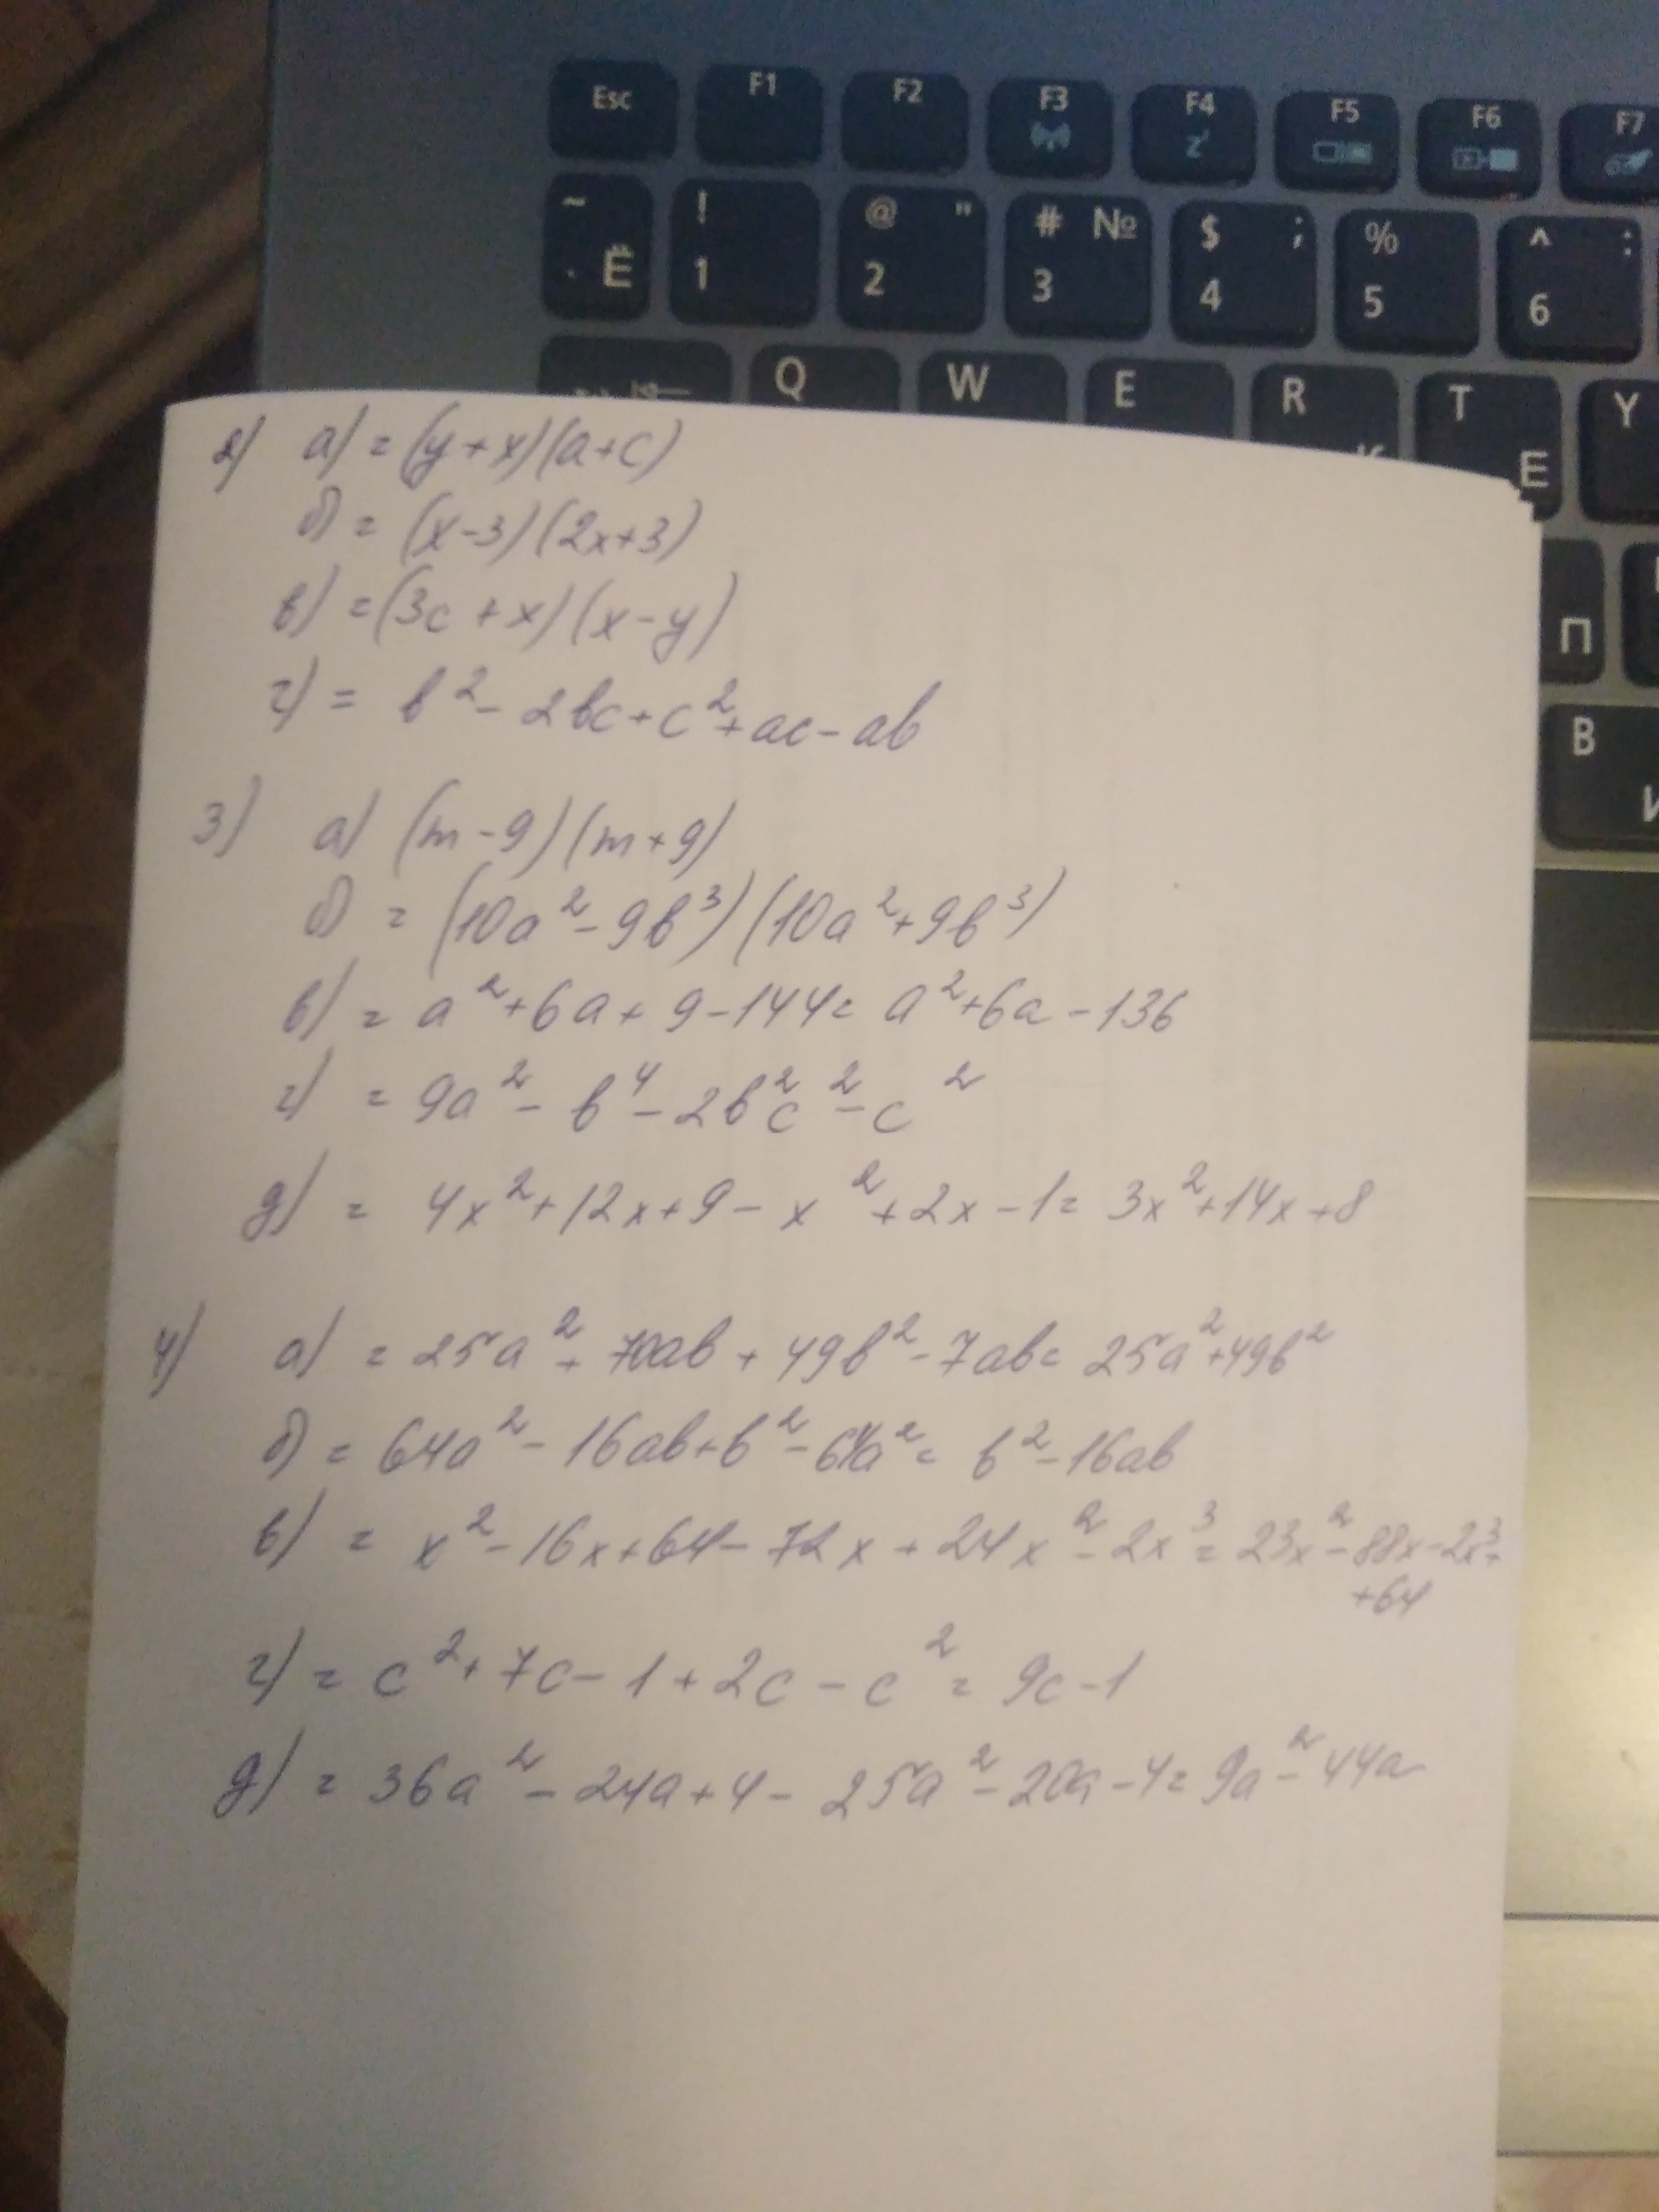 Esc F1 F2 F3 F4 F5 F6 F7
~ Ё ! 1 @ " 2 # № 3 $ ; 4 % 5 ^ : 6
Q W E R T Е Y
П
B И
2) а) = (y+x)(a+c)
б) = (x-3)(2x+3)
в) = (3c+x)(x-y)
г) = b² - 2bc + c² + ac - ab
3) а) (m-9)(m+9)
б) = (10a² - 9b³)(10a² + 9b³)
в) = a² + 6a + 9 - 144 = a² + 6a - 136
г) = 9a² - b⁴ - 2b²c² - c²
д) = 4x² + 12x + 9 - x² + 2x - 1 = 3x² + 14x + 8
4) а) = 25a² + 70ab + 49b² - 7ab = 25a² + 49b²
б) = 64a² - 16ab + b² - 64a² = b² - 16ab
в) = x² - 16x + 64 - 72x + 24x² - 2x³ = 23x² - 88x - 2x³ +
+64
г) = c² + 7c - 1 + 2c - c² = 9c - 1
д) = 36a² - 24a + 4 - 25a² - 20a - 4 = 9a² - 44a